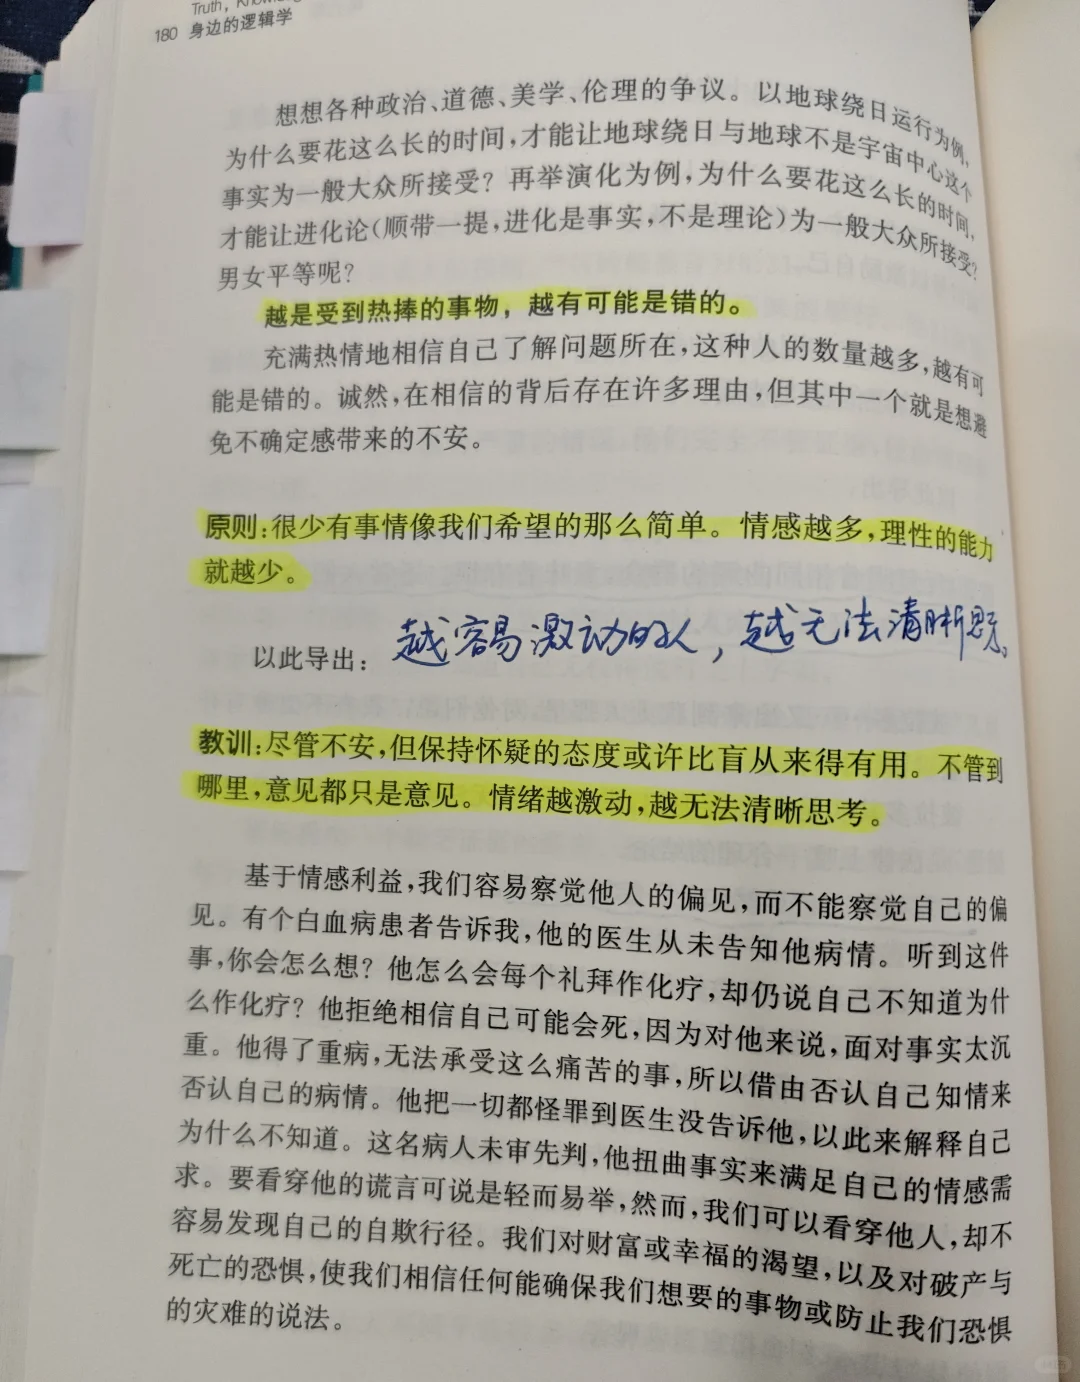 Truth,
180 身边的逻辑学
想想各种政治、道德、美学、伦理的争议。以地球绕日运行为例，
为什么要花这么长的时间，才能让地球绕日与地球不是宇宙中心这个
事实为一般大众所接受？再举演化为例，为什么要花这么长的时间，
才能让进化论（顺带一提，进化是事实，不是理论）为一般大众所接受？
男女平等呢？
越是受到热捧的事物，越有可能是错的。
充满热情地相信自己了解问题所在，这种人的数量越多，越有可
能是错的。诚然，在相信的背后存在许多理由，但其中一个就是想避
免不确定感带来的不安。
原则：很少有事情像我们希望的那么简单。情感越多，理性的能力
就越少。
以此导出：越容易激动的人，越无法清晰思
教训：尽管不安，但保持怀疑的态度或许比盲从来得有用。不管到
哪里，意见都只是意见。情绪越激动，越无法清晰思考。
基于情感利益，我们容易察觉他人的偏见，而不能察觉自己的偏
见。有个白血病患者告诉我，他的医生从未告知他病情。听到这件
事，你会怎么想？他怎么会每个礼拜作化疗，却仍说自己不知道为什
么作化疗？他拒绝相信自己可能会死，因为对他来说，面对事实太沉
重。他得了重病，无法承受这么痛苦的事，所以借由否认自己知情来
否认自己的病情。他把一切都怪罪到医生没告诉他，以此来解释自己
为什么不知道。这名病人未审先判，他扭曲事实来满足自己的情感需
求。要看穿他的谎言可说是轻而易举，然而，我们可以看穿他人，却不
容易发现自己的自欺行径。我们对财富或幸福的渴望，以及对破产与
死亡的恐惧，使我们相信任何能确保我们想要的事物或防止我们恐惧
的灾难的说法。